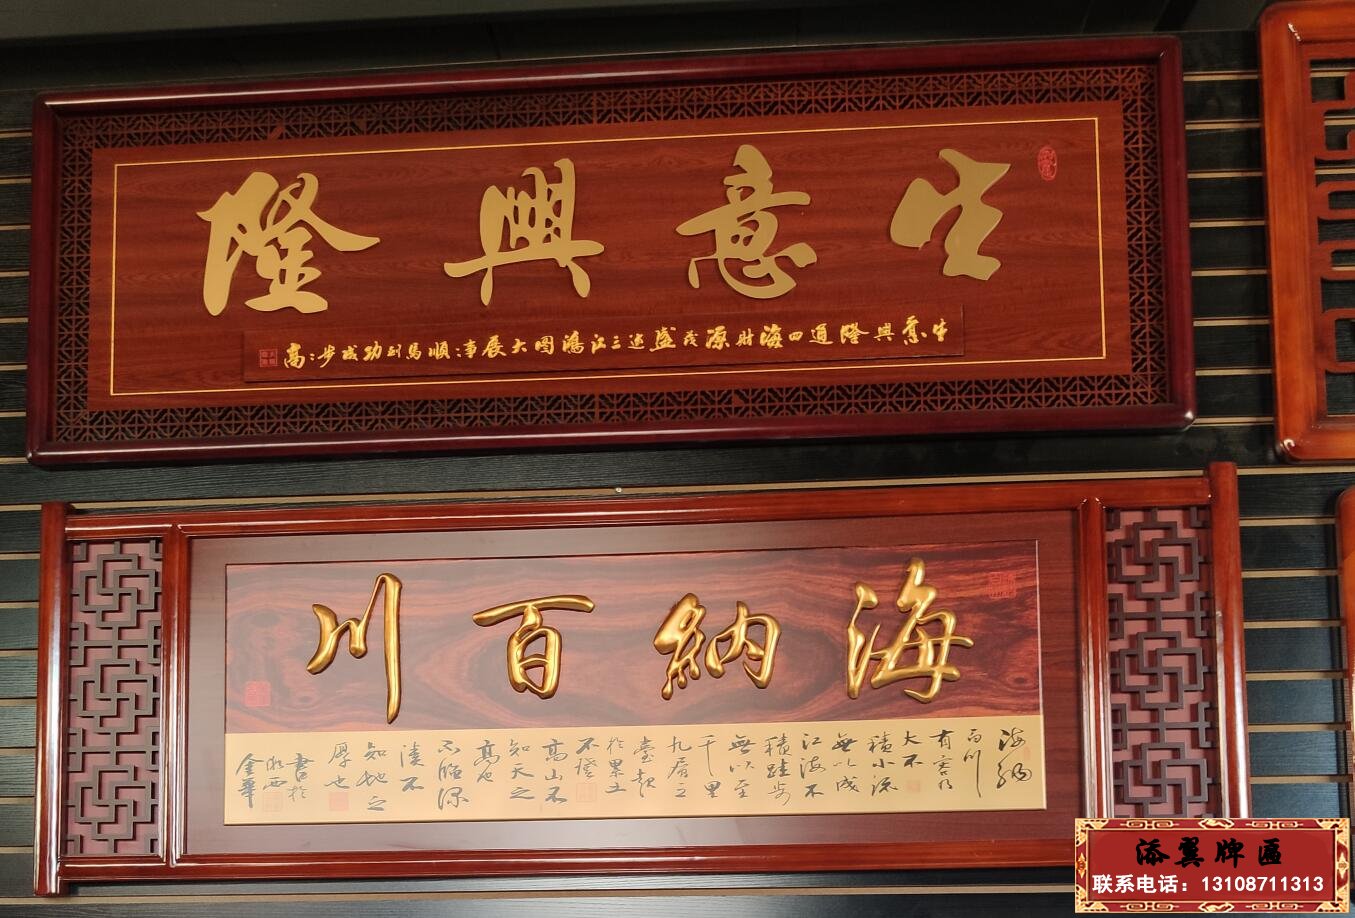 生意興隆
生意興隆通四海財源茂盛达三江鴻图大展事事順馬到功成步步高
海納百川
海納
百川
有容乃
大不
積小流
無以成
江海不
積跬步
無以至
千里
九層之
臺起
於累土
不登
高山不
知天之
高也
不臨深
溪不
知地之
厚也
書於
金華
添翼牌匾
联系电话：13108711313